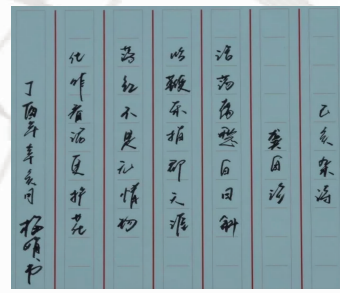 己亥杂诗
龚自珍
浩荡离愁白日斜
吟鞭东指即天涯
落红不是无情物
化作春泥更护花
丁酉年辛亥月